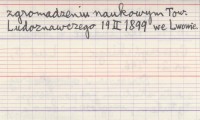 zgromadzeniu naukowym Tow.
Ludoznawczego 19 II 1899 we Lwowie.